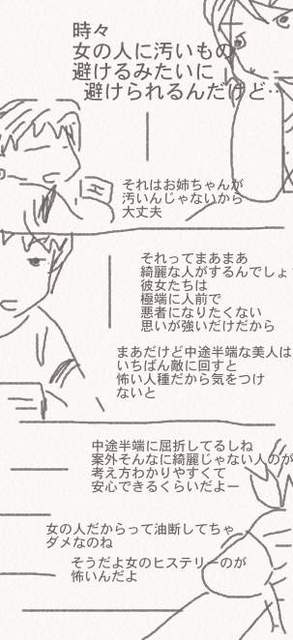 時々
女の人に汚いもの
避けるみたいに
避けられるんだけど…
それはお姉ちゃんが
汚いんじゃないから
大丈夫
それってまあまあ
綺麗な人がするんでしょ?
彼女たちは
極端に人前で
悪者になりたくない
思いが強いだけだから
まあだけど中途半端な美人は
いちばん敵に回すと
怖い人種だから気をつけ
ないと
中途半端に屈折してるしね
案外そんなに綺麗じゃない人のが
考え方わかりやすくて
安心できるくらいだよー
女の人だからって油断してちゃ
ダメなのね
そうだよ女のヒステリーのが
怖いんだよ